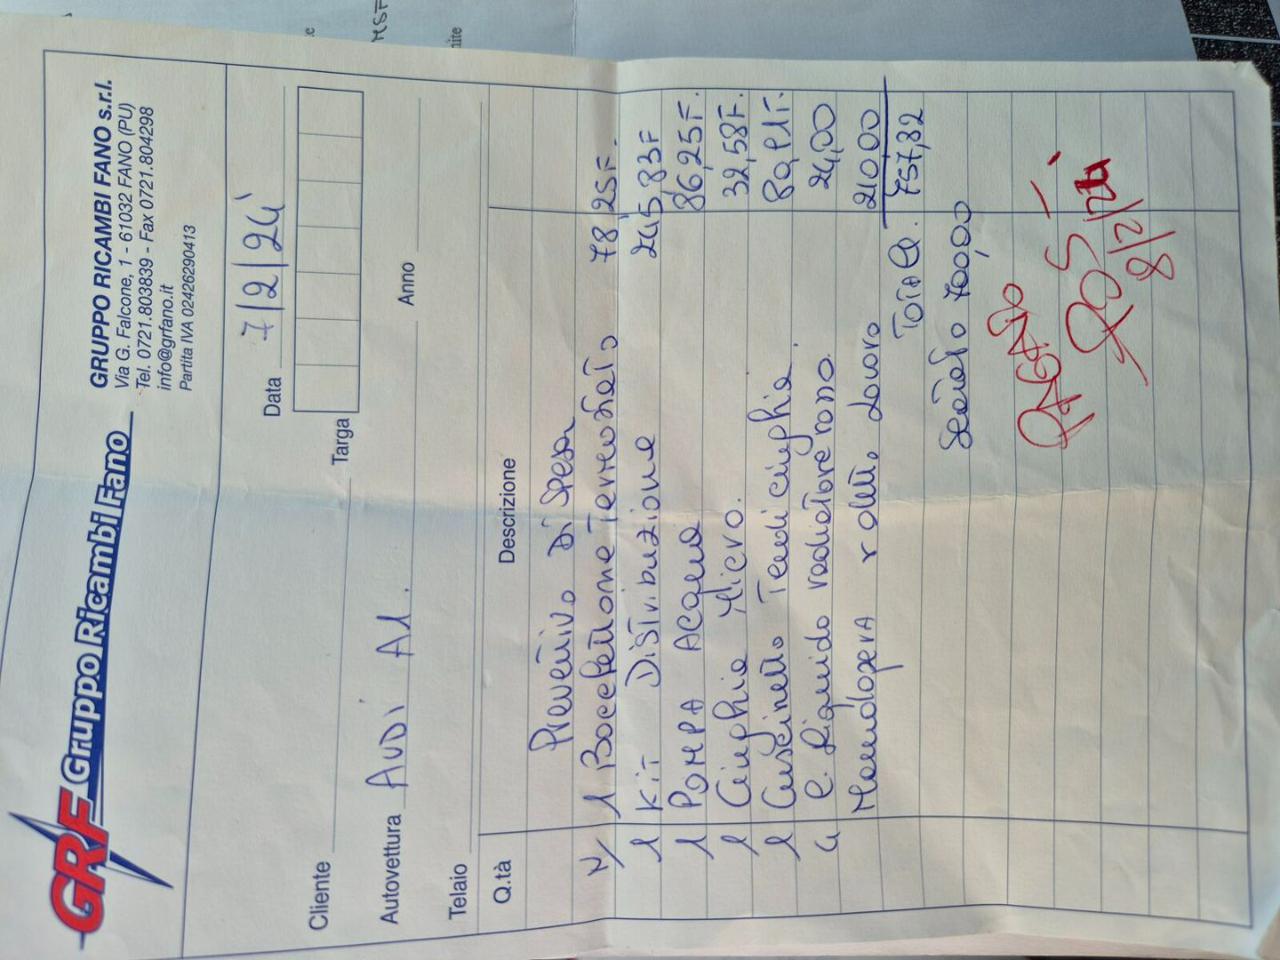 GRF Gruppo Ricambi Fano
GRUPPO RICAMBI FANO s.r.l.
Via G. Falcone, 1 - 61032 FANO (PU)
Tel. 0721.803839 - Fax 0721.804298
info@grfano.it
Partita IVA 02426290413
Data 7/2/24
Cliente
Targa
Autovettura AUDI A1.
Anno
Telaio
Q.tà Descrizione
Preventivo Di Spesa
N/ 1 Termostato 78,25F.
1 Kit Distribuzione 245,83F
1 POMPA ACQUA 86,25F.
1 Cinghia Micro. 32,58F.
1 Cuscinetto Tendicinghia. 80,91F.
4 l. liquido radiatore rosso. 24,00
Manodopera lavoro 210,00
Totale. 757,82
Scontato 700,00
PAGATO
POS
8/2/24